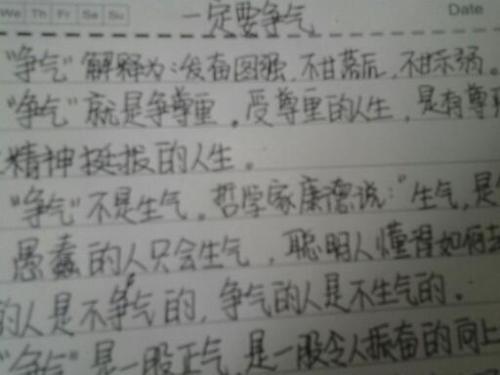 We Th Fr Sa Su
一定要争气 Date
"争气"解释为:发奋图强、不甘落后、不甘示弱。
"争气"就是争尊重。受尊重的人生,是有尊
精神挺拔的人生。
"争气"不是生气。哲学家康德说:"生气,是
愚蠢的人只会生气,聪明人懂得如何去
的人是不争气的,争气的人是不生气的。
"争气"是一股正气,是一股令人振奋的向上